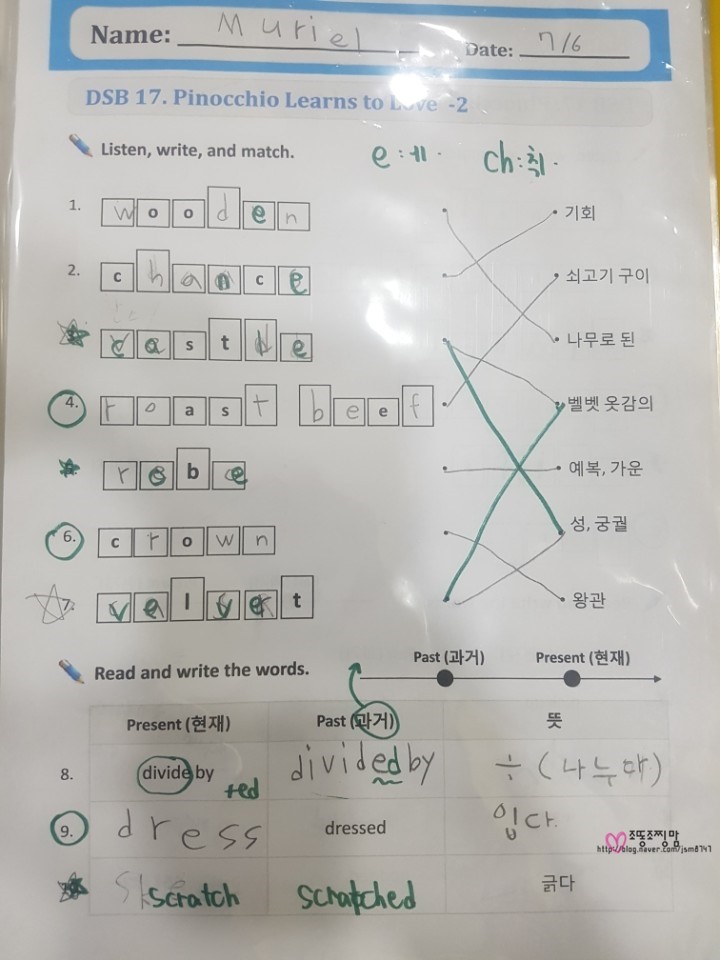 Name: Muriel Date: 7/6
DSB 17. Pinocchio Learns to Love -2
Listen, write, and match. e:ㅔ. ch:칙.
1. wooden 기회
2. chance 쇠고기 구이
castle 나무로 된
4. roast beef 벨벳 옷감의
robe 예복, 가운
6. crown 성, 궁궐
7. velvet 왕관
Read and write the words. Past (과거) Present (현재)
Present (현재) Past (과거) 뜻
8. divide by +ed divided by ÷ (나누다)
9. dress dressed 입다.
scratch scratched 긁다
조뚱조찡맘
http://blog.naver.com/jsm8747